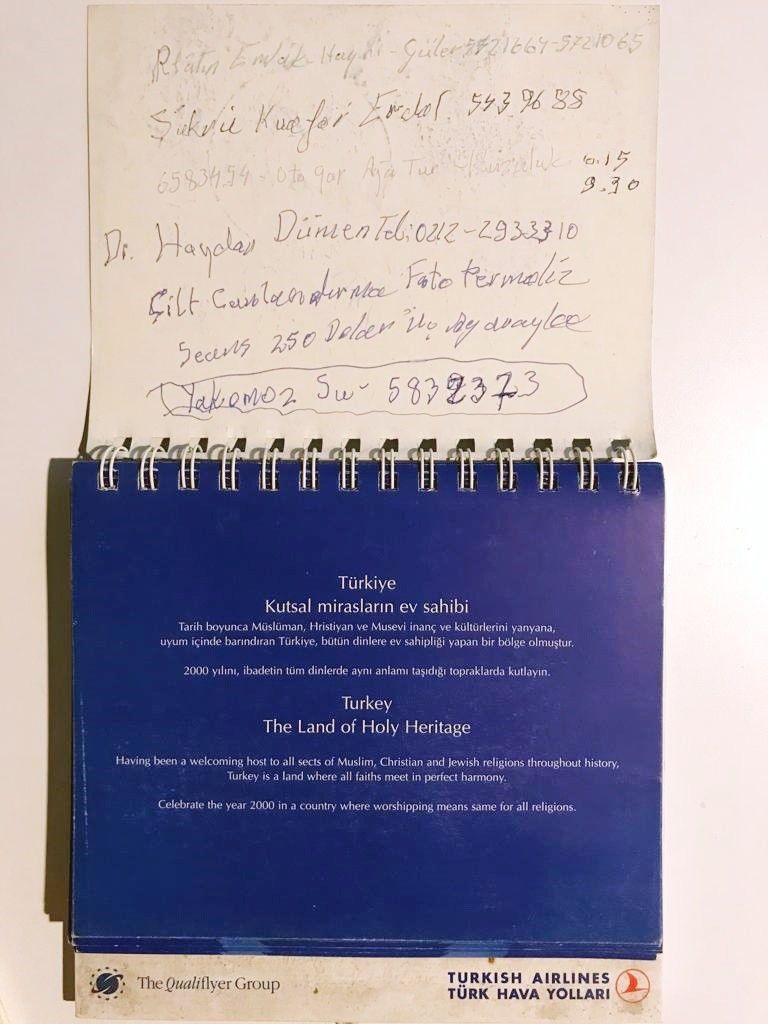 Emlak Hayri - Güler 5721664-5721065
Şükrü Kuaför Erdal 543 96 88
6583454 - Otogar Aga Tur
9.30
Dr. Haydar Dümen Tel: 0212-2933310
Çilt Canlandırma Foto Permaliz
Seans 250 Dolar
Yakamoz Su - 5832373
Türkiye
Kutsal mirasların ev sahibi
Tarih boyunca Müslüman, Hristiyan ve Musevi inanç ve kültürlerini yanyana,
uyum içinde barındıran Türkiye, bütün dinlere ev sahipliği yapan bir bölge olmuştur.
2000 yılını, ibadetin tüm dinlerde aynı anlamı taşıdığı topraklarda kutlayın.
Turkey
The Land of Holy Heritage
Having been a welcoming host to all sects of Muslim, Christian and Jewish religions throughout history,
Turkey is a land where all faiths meet in perfect harmony.
Celebrate the year 2000 in a country where worshipping means same for all religions.
The Qualiflyer Group
TURKISH AIRLINES
TÜRK HAVA YOLLARI